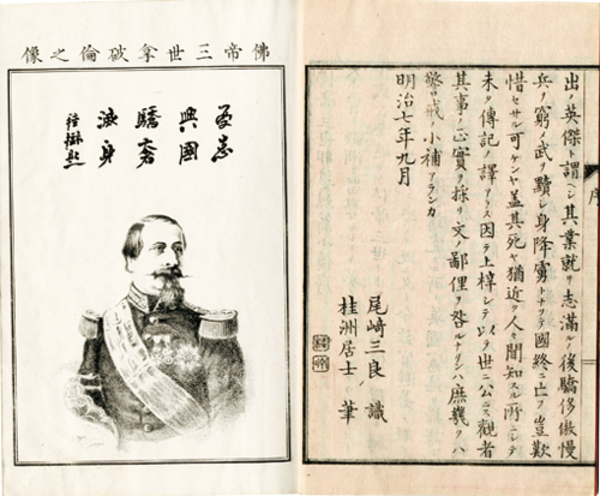 序
出ノ英傑ト謂ヘシ其業就リ志滿ルノ後驕侈傲慢
兵ヲ窮メ武ヲ黷シ身降虜トナリテ國終ニ亡フ豈歎
惜セサル可ケンヤ蓋其死ヤ猶近ク人々聞知スル所ニシテ
未タ傳記ノ譯アラス因テ上梓シテ以テ世ニ公ニス觀者
其事ノ正實ヲ採リ文ノ鄙俚ヲ咎ルナクンハ庶幾クハ
警戒ノ小補アランカ
明治七年九月
尾崎三良 識
桂洲居士 筆
佛帝三世拿破倫之像
志
興國
驕奢
滅身